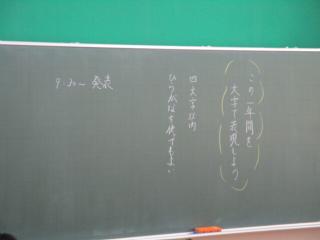 この一年間を
文字で表現しよう
四文字以内
ひらがなを使ってもよい
9:20～ 発表